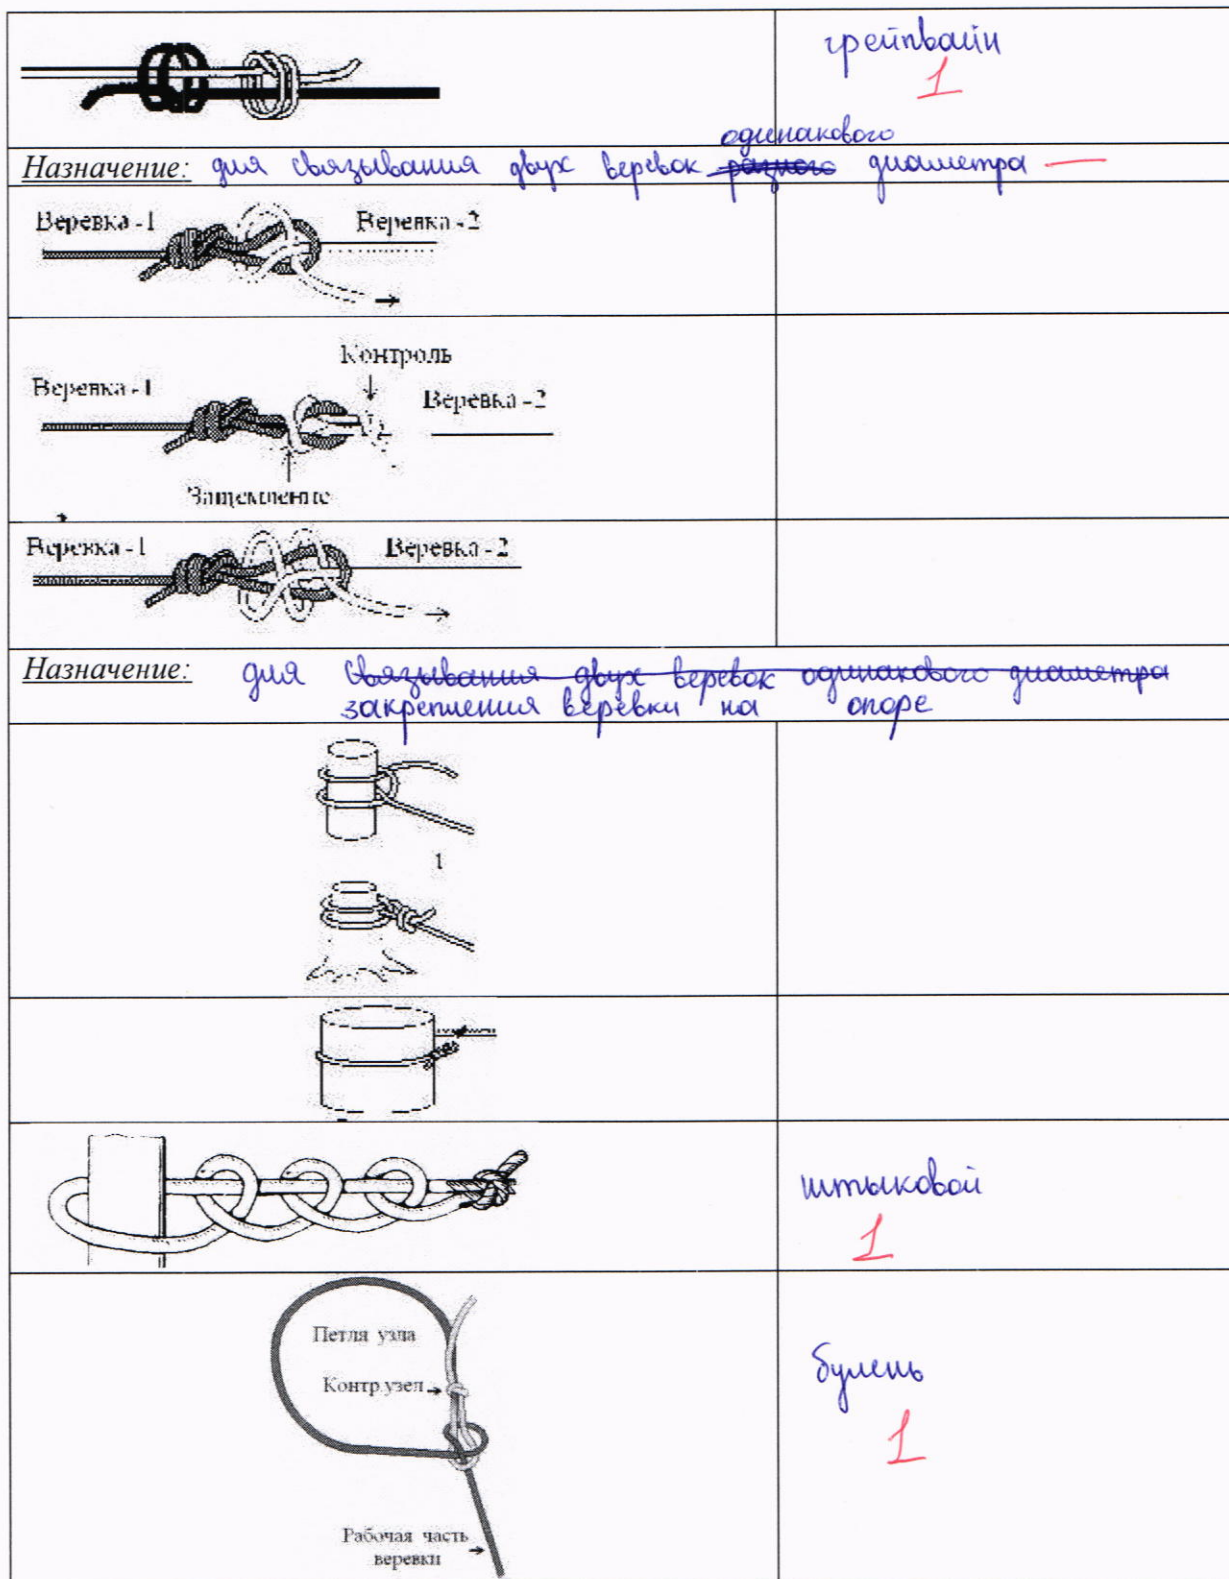 грейпвайн
1
одинакового
Назначение: для связывания двух веревок разного диаметра —
Веревка -1 Веревка -2
Контроль
Веревка -1 Веревка -2
Защемление
Веревка -1 Веревка - 2
Назначение: для связывания двух веревок одинакового диаметра
закрепления веревки на опоре
1
штыковой
1
Петля узла
Контр.узел
булень
1
Рабочая часть
веревки